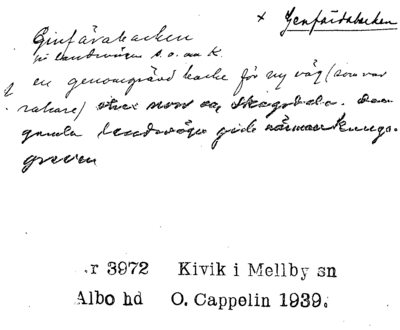 × Genfärdsbacken
Ginfärabacken
på landsvägen s.o. om K.
en genomgrävd backe för ny väg (som var
rakare) norr om Skogsdala. Den
gamla landsvägen gick närmare kungs-
graven
.r 3972 Kivik i Mellby sn
Albo hd O. Cappelin 1939.